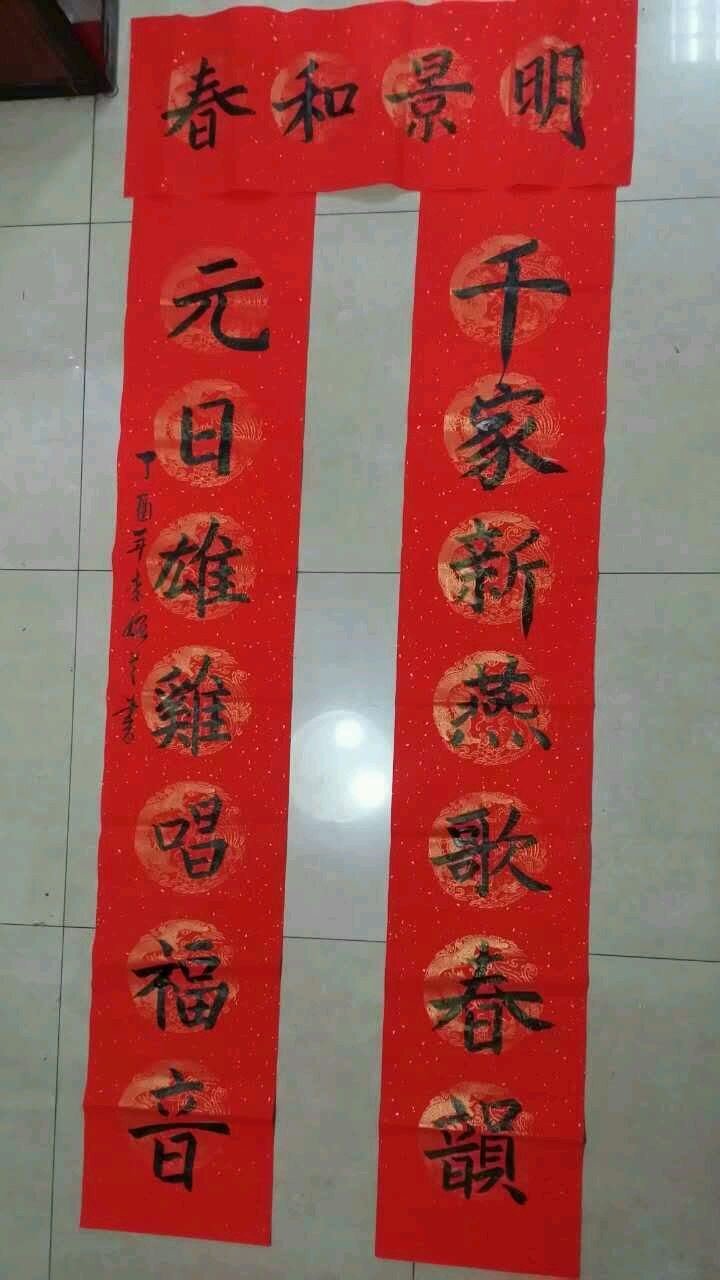 春和景明
千家新燕歌春韻
元日雄雞唱福音
丁酉年